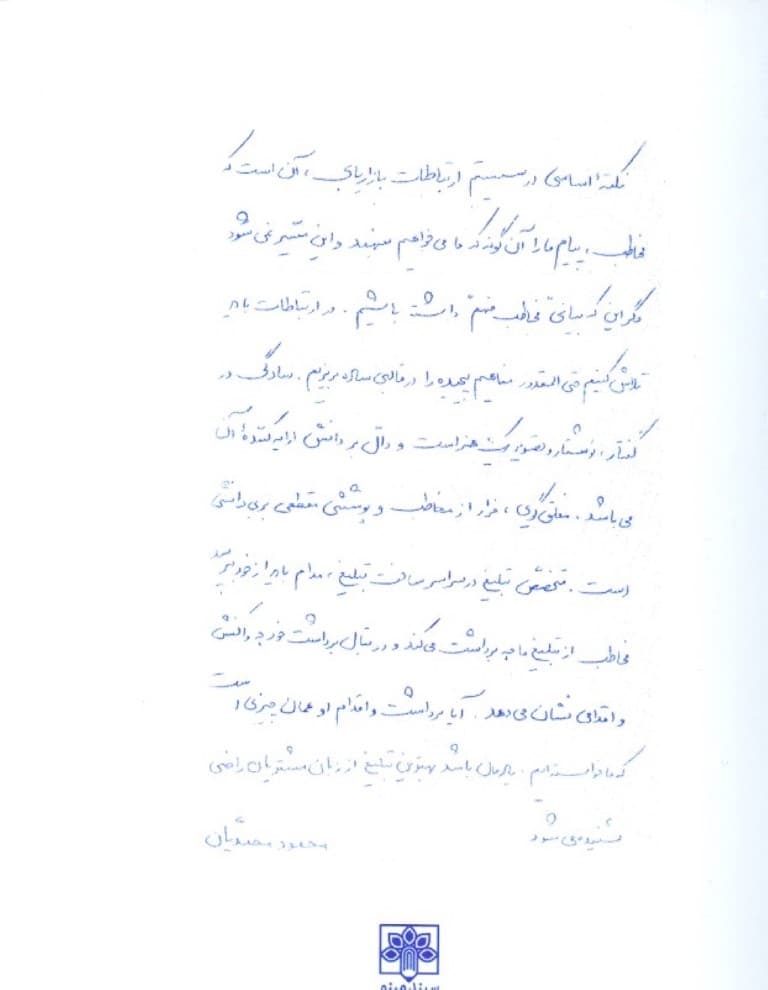 نکتهٔ اساسی در سیستم ارتباطات بازاریابی، آن است که
مخاطب، پیام ما را آن گونه که ما می خواهیم بفهمد و این میسّر نمی شود
مگر این که بیانی "مخاطب فهم" داشته باشیم. در ارتباطات باید
تلاش کنیم حتی المقدور مفاهیم پیچیده را در قالبی ساده بریزیم. سادگی در
گفتار، نوشتار و تصویر یک هنر است و دالّ بر دانش ارایه کنندهٔ آن
می باشد. مغلق گویی، فرار از مخاطب و پوششی مقطعی بر بی دانشی
است. متخصّص تبلیغ در سراسر ساخت تبلیغ، مدام باید از خود بپرسد
مخاطب از تبلیغ ما چه برداشت می کند و در قبال برداشت خود چه واکنش
و اقدامی نشان می دهد. آیا برداشت و اقدام او همان چیزی است
که ما خواسته ایم. یادمان باشد بهترین تبلیغ از زبان مشتریان راضی
شنیده می شود
محمود محمدیان